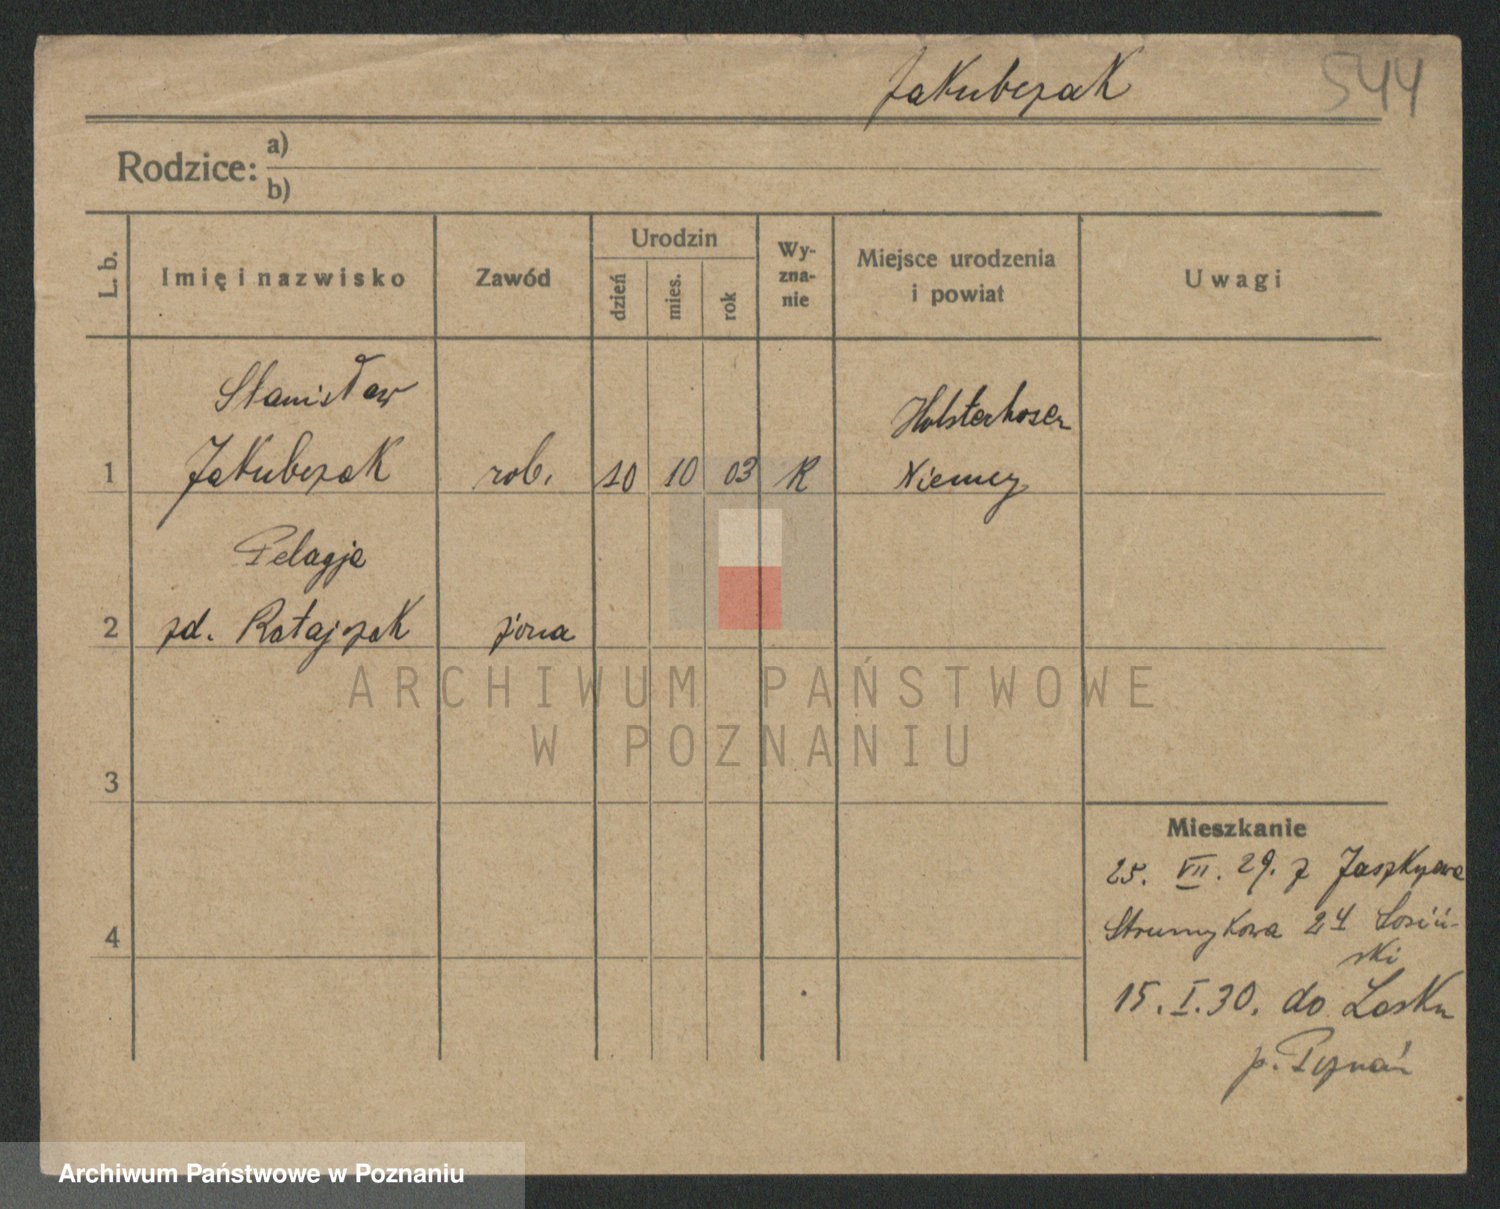 Jakubczak 544
Rodzice: a)
b)
L. b. Imię i nazwisko Zawód Urodzin dzień mies. rok Wy-zna-nie Miejsce urodzenia i powiat Uwagi
Stanisław Holsterhosen
1 Jakubczak rob. 10 10 03 R Niemcy
Pelagja
2 zd. Ratajczak żona
ARCHIWUM PAŃSTWOWE
W POZNANIU
3
Mieszkanie
25. VII. 29. z
4 Strumykowa 24 Łosiń-
ski
15. I. 30. do Lasku
p. Poznań
Archiwum Państwowe w Poznaniu